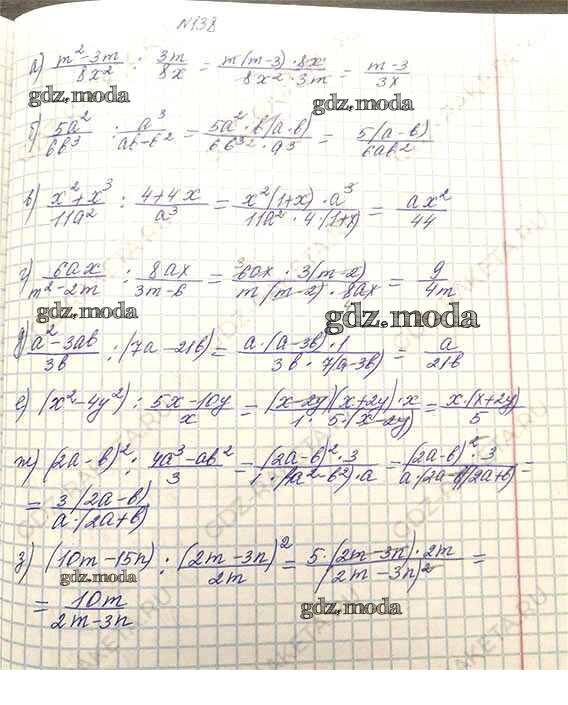 №138
а) (m² - 3m)/(8x²) : 3m/(8x) = (m(m-3)·8x)/(8x²·3m) = (m-3)/(3x)
gdz.moda gdz.moda
б) 5a²/(6b³) : a³/(ab-b²) = (5a²·b(a-b))/(6b³·a³) = 5(a-b)/(6ab²)
в) (x²+x³)/(11a²) : (4+4x)/a³ = (x²(1+x)·a³)/(11a²·4(1+x)) = ax²/44
г) 6ax/(m²-2m) : 8ax/(3m-6) = (6ax·3(m-2))/(m(m-2)·8ax) = 9/(4m)
gdz.moda gdz.moda
д) (a²-3ab)/(3b) : (7a-21b) = (a·(a-3b)·1)/(3b·7(a-3b)) = a/(21b)
е) (x²-4y²) : (5x-10y)/x = ((x-2y)(x+2y)·x)/(1·5·(x-2y)) = (x·(x+2y))/5
ж) (2a-b)² : (4a³-ab²)/3 = ((2a-b)²·3)/(1·(4a²-b²)·a) = ((2a-b)²·3)/(a·(2a-b)(2a+b)) =
= 3(2a-b)/(a·(2a+b))
з) (10m-15n) : (2m-3n)²/(2m) = (5·(2m-3n)·2m)/(2m-3n)² =
gdz.moda
= 10m/(2m-3n)
gdz.moda